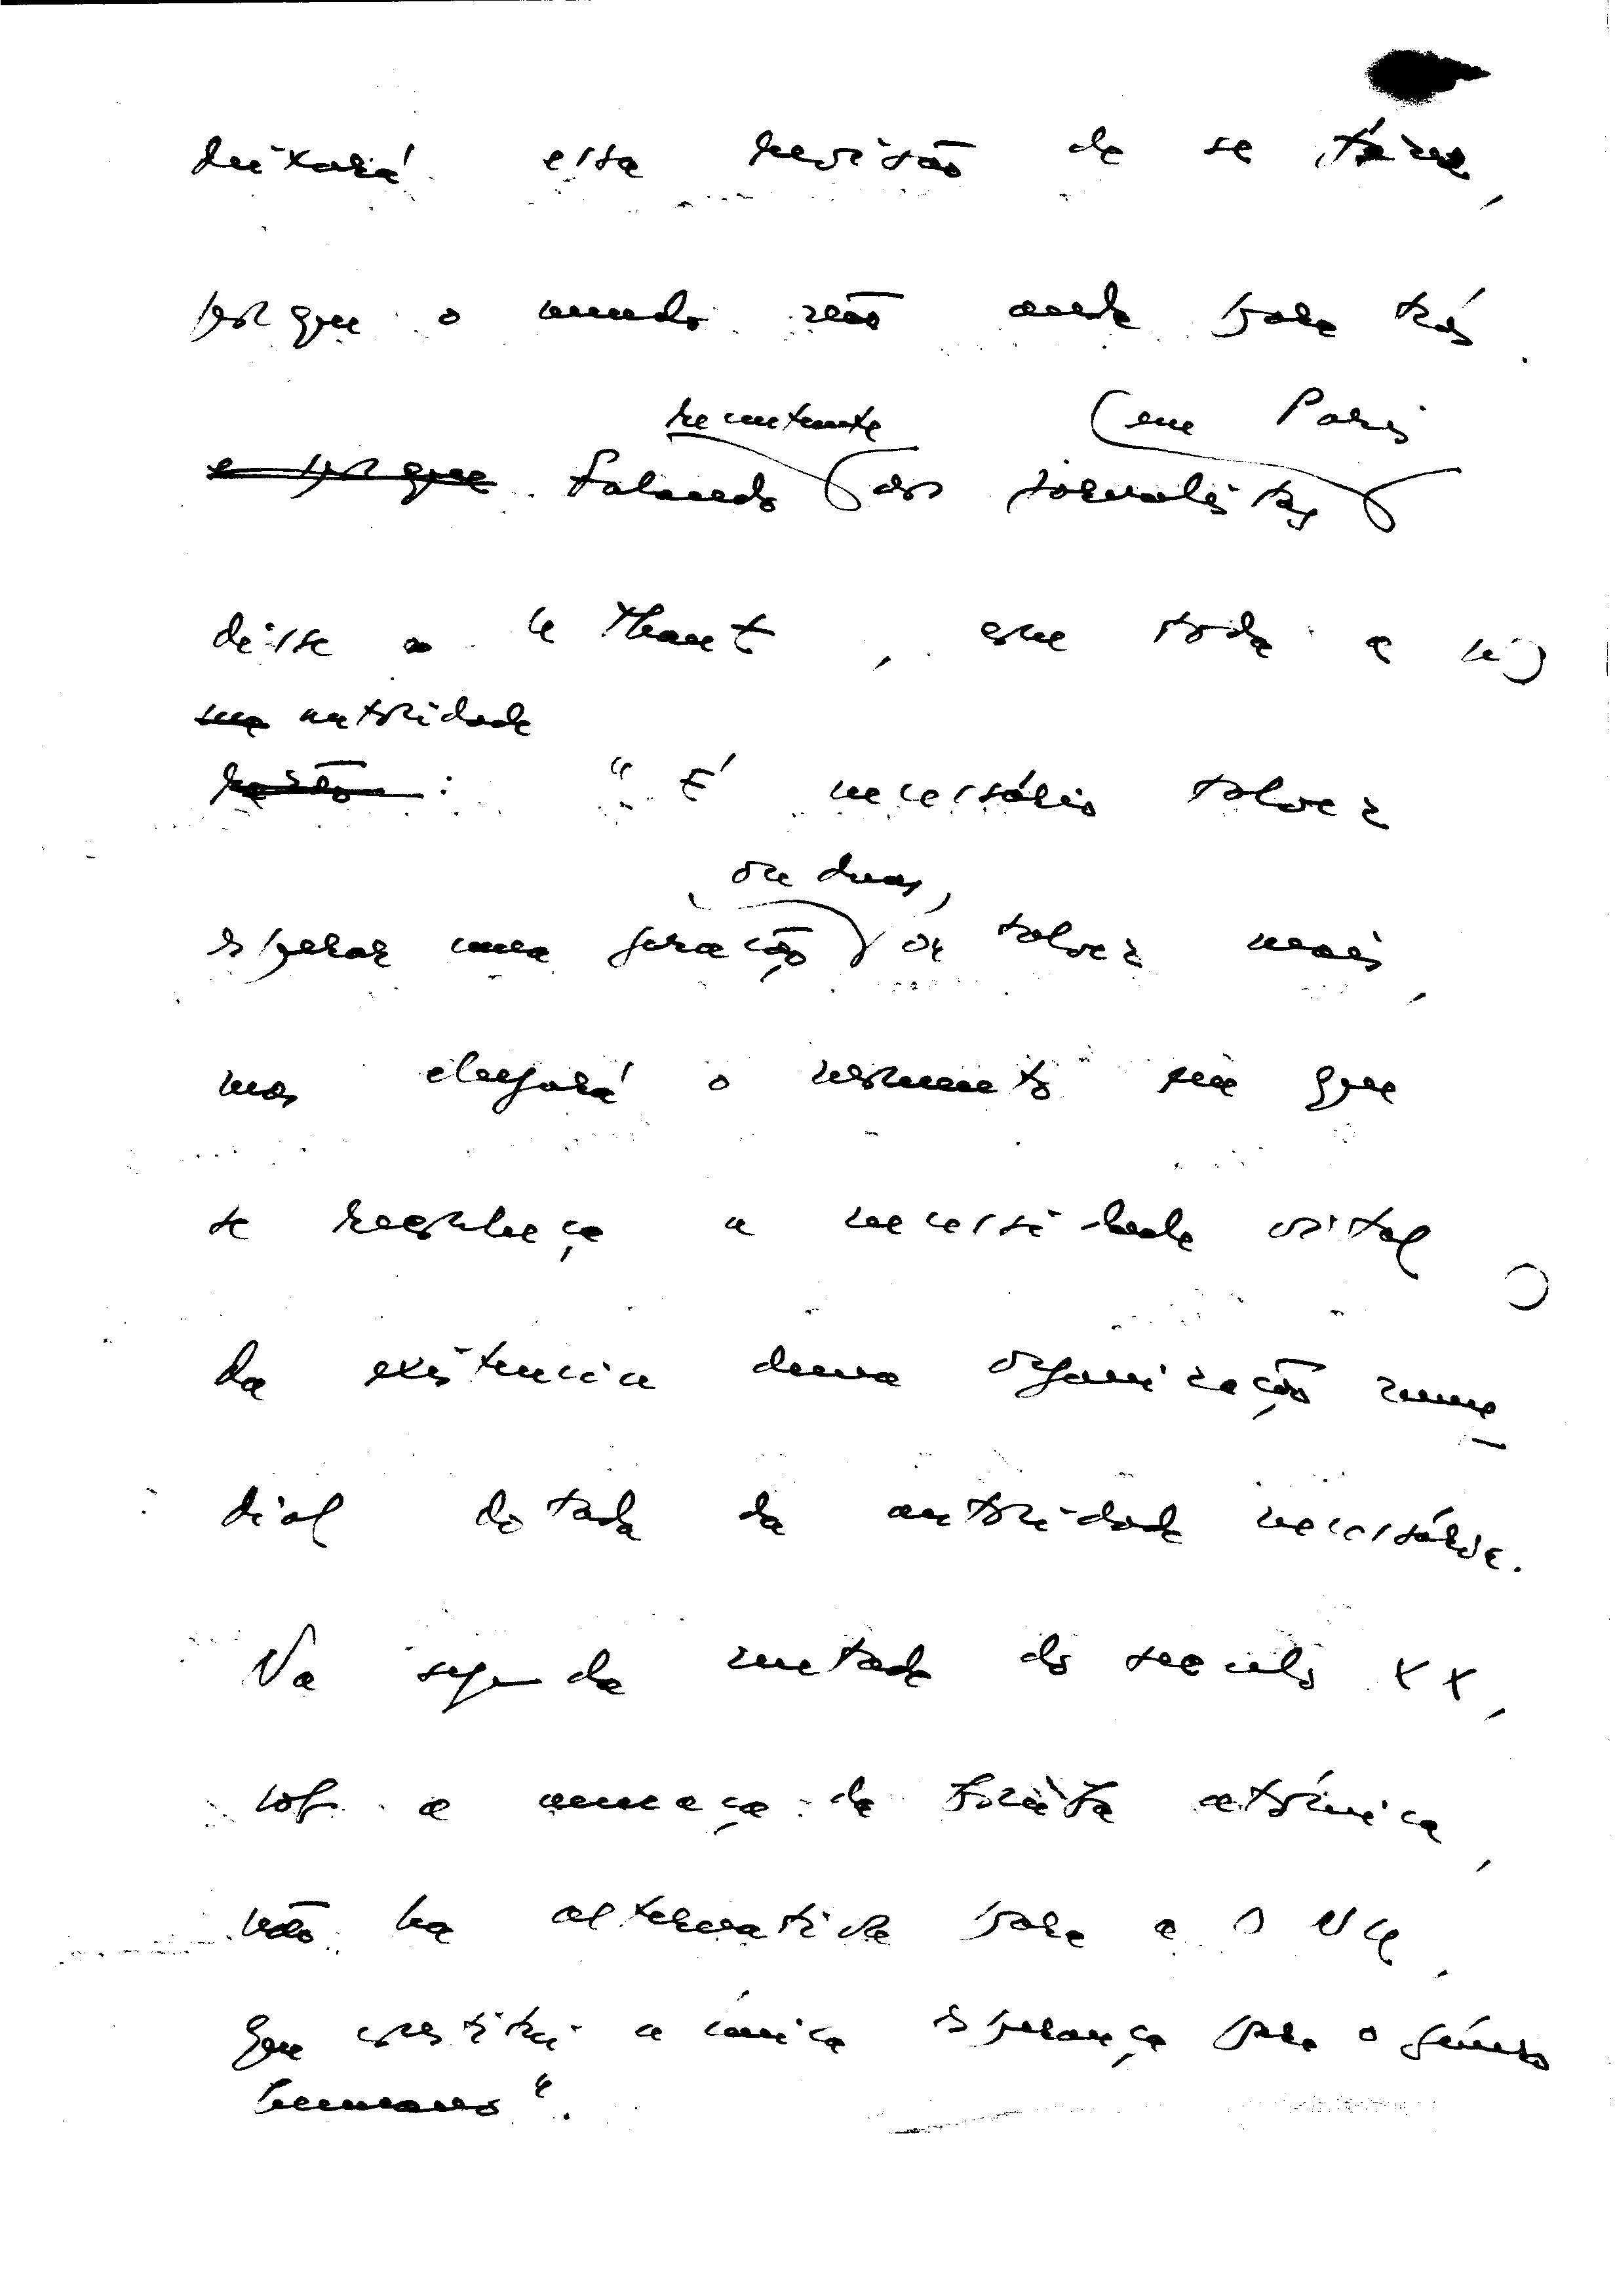 deixará essa revisão de se fazer,
porque o mundo não anda para trás.
recentemente (em Paris
e porque Falando aos jornalistas
disse o U Thant, com toda a
sua autoridade
razão: "É necessário talvez
ou duas,
esperar uma geração ou talvez mais,
mas chegará o momento em que
se reconheça a necessidade vital
da existencia duma organização mun-
dial dotada da autoridade necessária.
Na segunda metade do seculo XX,
sob a ameaça da atómica,
não ha alternativa para a ONU,
que constitui a única esperança para o género
humano".